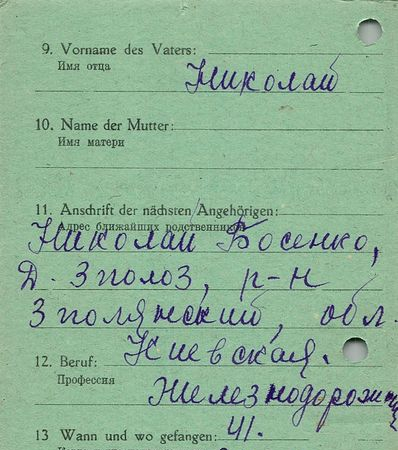 9. Vorname des Vaters:
Имя отца
Николай
10. Name der Mutter:
Имя матери
11. Anschrift der nächsten Angehörigen:
Адрес ближайших родственников
Николай Босенко,
Д. Зполоз, р-н
Зполянский, обл.
Киевская.
12. Beruf:
Профессия
Железнодорожник
13 Wann und wo gefangen: 41.